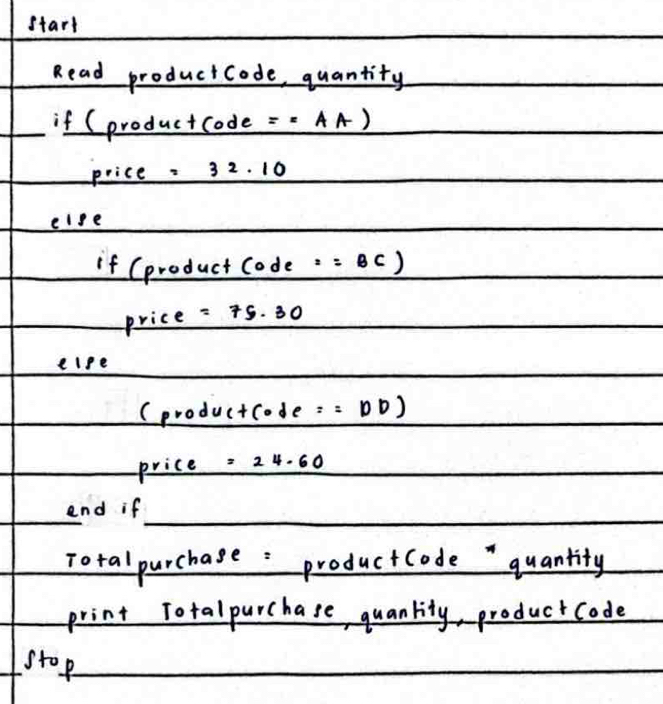 Start
Read productCode, quantity
if (productCode == AA)
price = 32.10
else
if (productCode == BC)
price = 75.30
else
(productCode == DD)
price = 24.60
end if
Totalpurchase = productCode * quantity
print Totalpurchase, quantity, productCode
Stop